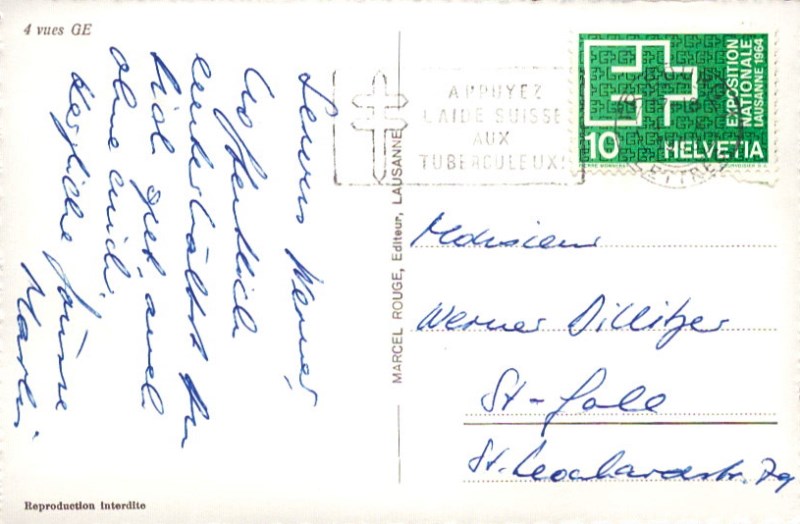 4 vues GE
Servus Werner,
Hoffentlich
unterhältst Du
Dich gut, auch
ohne mich.
Herzliche Grüsse
Martin
Reproduction interdite
MARCEL ROUGE, Editeur, LAUSANNE
APPUYEZ
L'AIDE SUISSE
AUX
TUBERCULEUX!
EXPOSITION
NATIONALE
LAUSANNE 1964
10 HELVETIA
Monsieur
Werner Dillitzer
St-Galle
St. Leonhardstr. 79